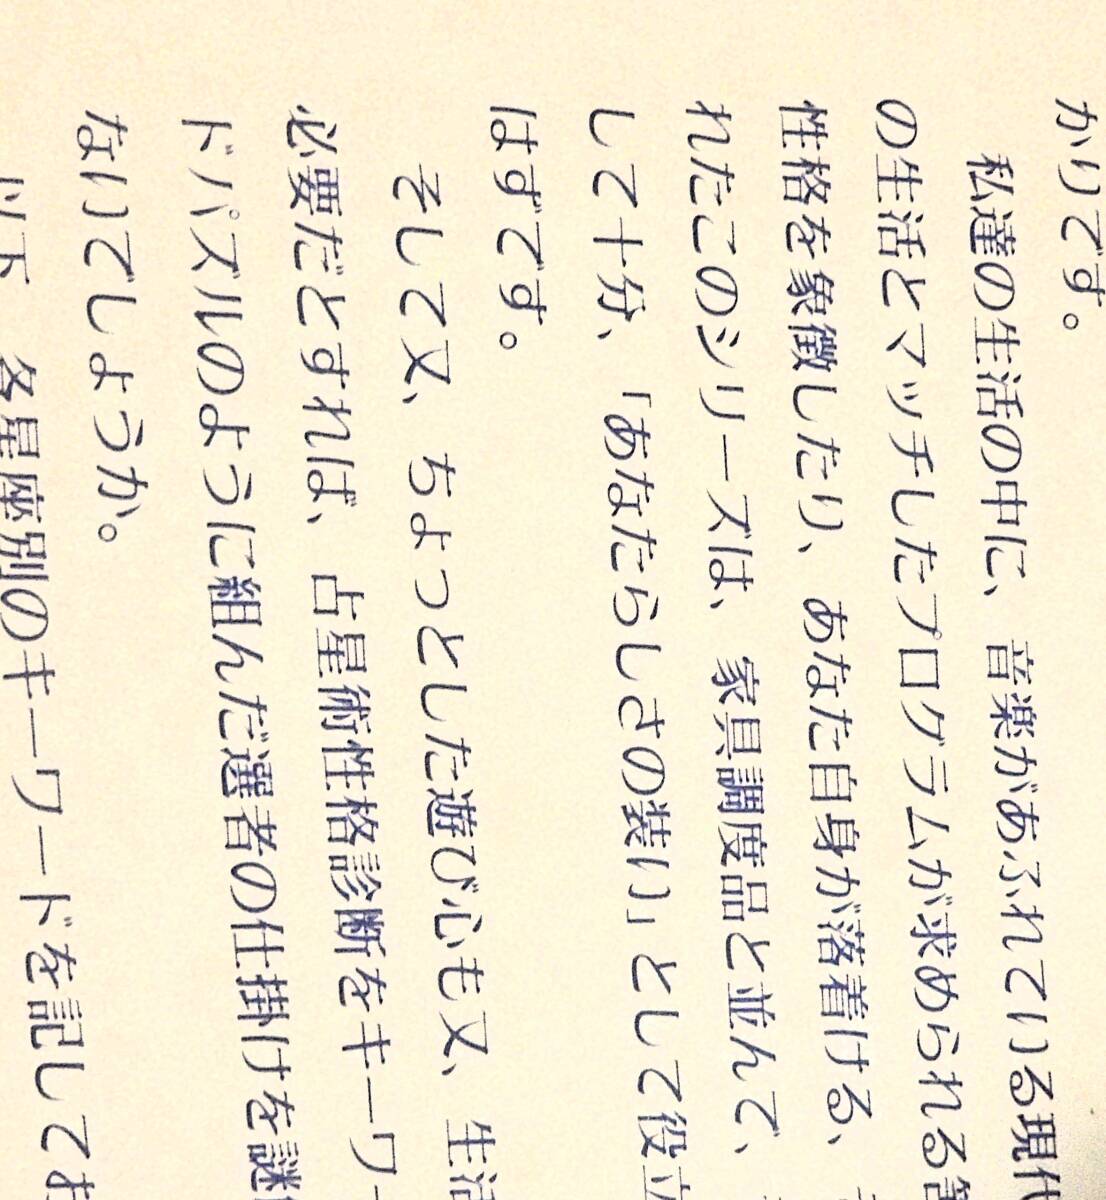 かりです。
私達の生活の中に、音楽があふれている現代
の生活とマッチしたプログラムが求められる筈
性格を象徴したり、あなた自身が落着ける、
れたこのシリーズは、家具調度品と並んで、
して十分、「あなたらしさの装い」として役立
はずです。
そして又、ちょっとした遊び心も又、生活
必要だとすれば、占星術性格診断をキーワー
ドパズルのように組んだ選者の仕掛けを謎
ないでしょうか。
以下、各星座別のキーワードを記してお